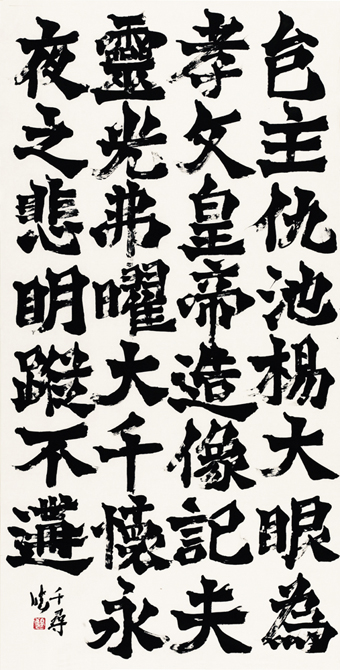 邑主仇池楊大眼為
孝文皇帝造像記夫
靈光弗曜大千懷永
夜之悲明蹤不遘
千尋